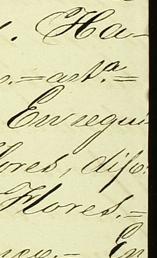 . Ha-
o.=asta.=
En segui
lores, dijo:
Flores.=
=En